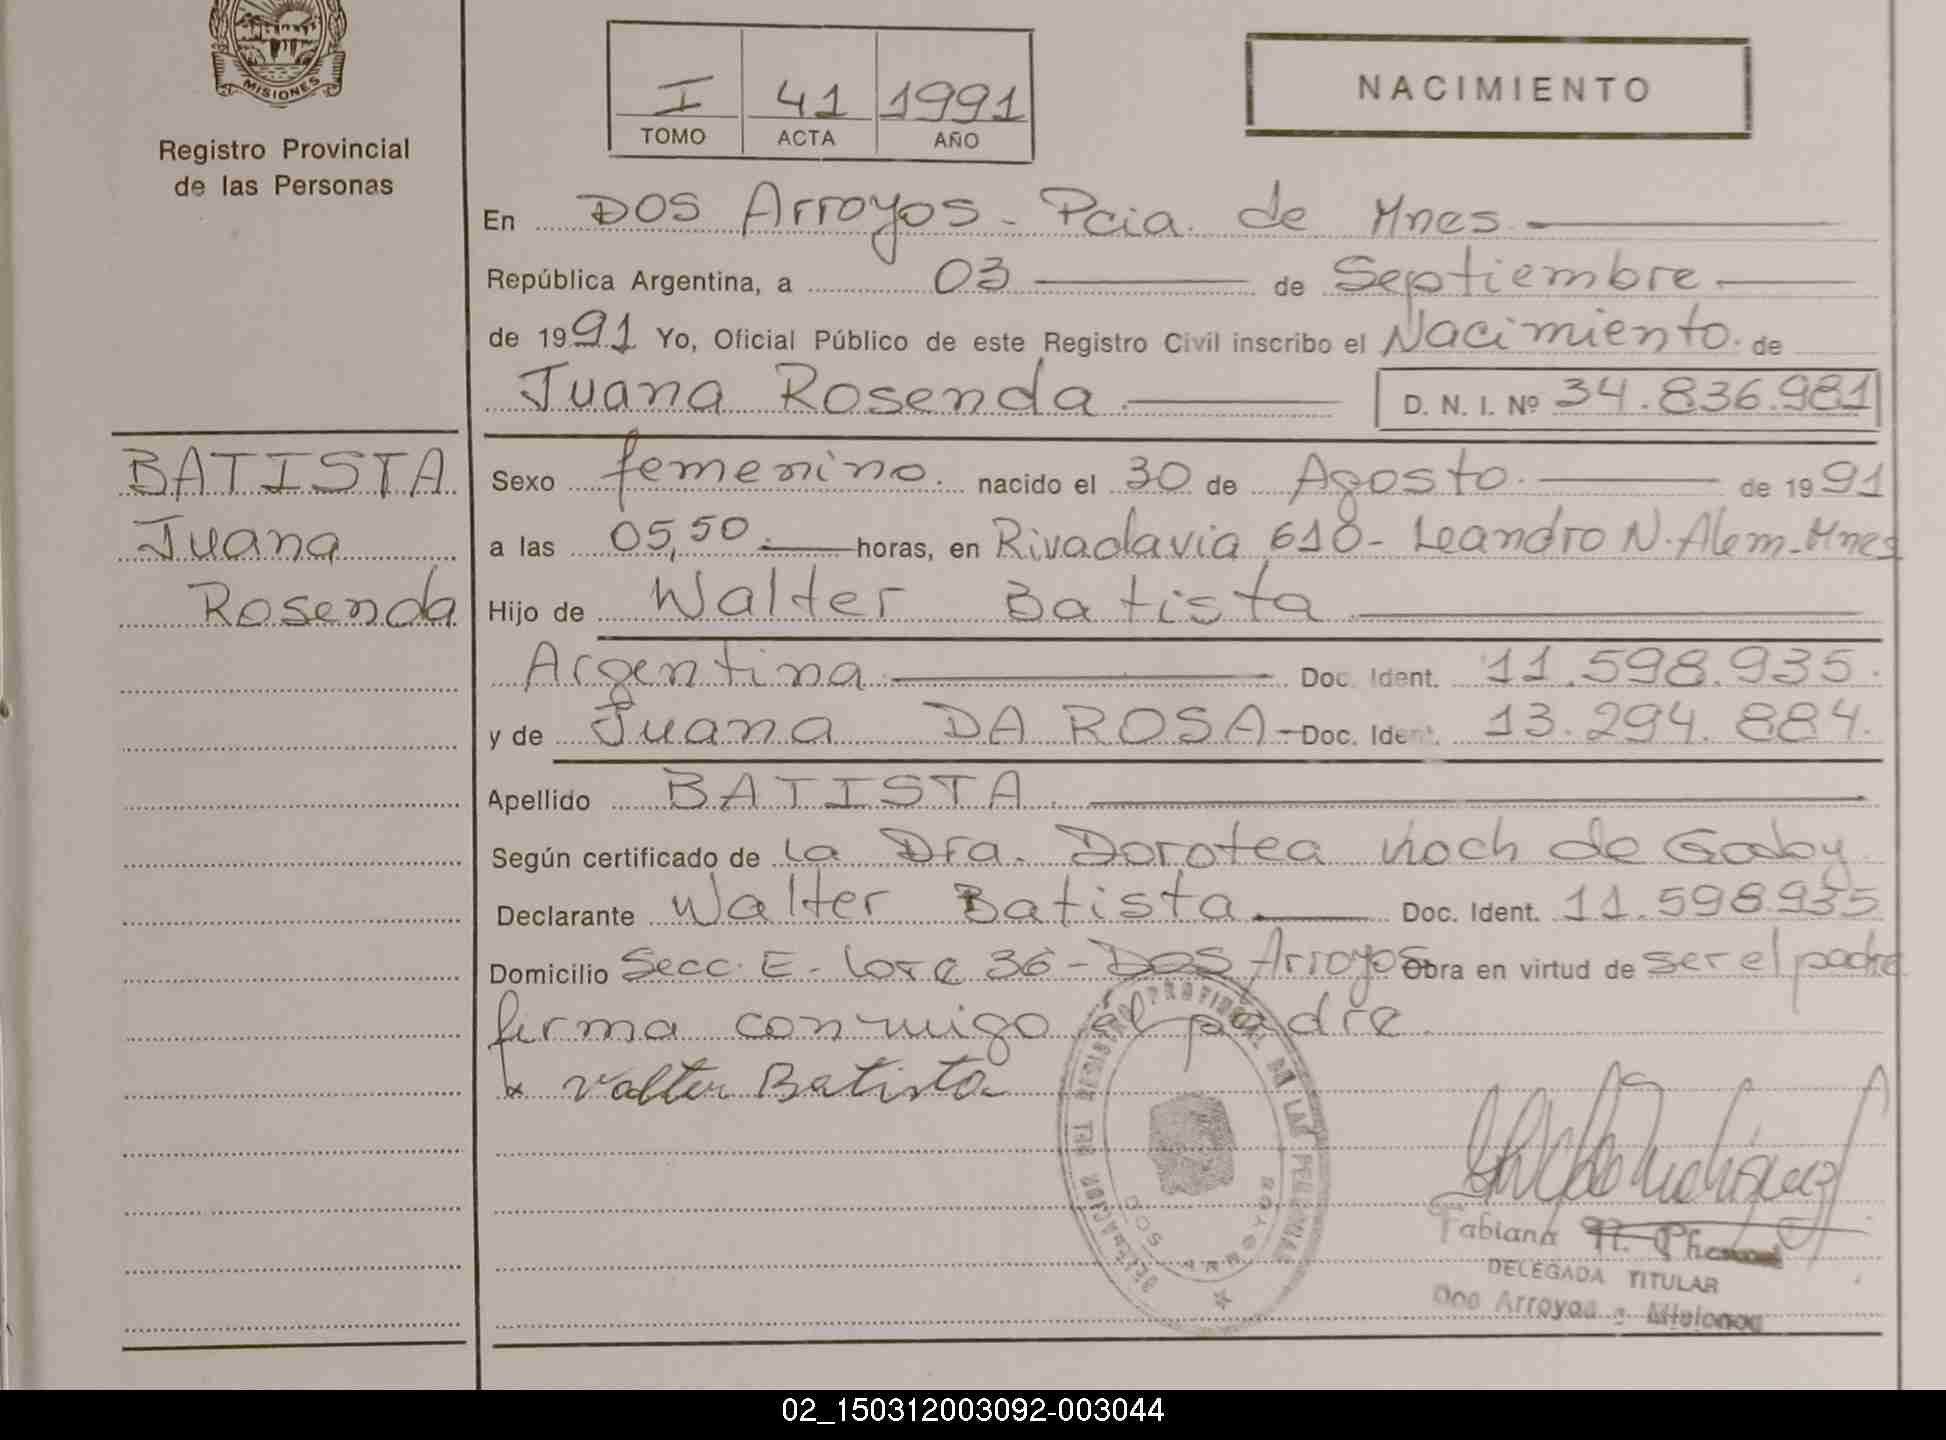 MISIONES
Registro Provincial
de las Personas
I 41 1991
TOMO ACTA AÑO
NACIMIENTO
En DOS Arroyos - Pcia. de Mnes.
República Argentina, a 03 de Septiembre
de 1991 Yo, Oficial Público de este Registro Civil inscribo el Nacimiento. de
Juana Rosenda D. N. I. Nº 34.836.981
BATISTA
Juana
Rosenda
Sexo femenino. nacido el 30 de Agosto. de 1991
a las 05,50. horas, en Rivadavia 610 - Leandro N. Alem - Mnes
Hijo de Walter Batista
Argentina Doc. Ident. 11.598.935.
y de Juana DA ROSA - Doc. Ident. 13.294.884.
Apellido BATISTA.
Según certificado de la Dra. Dorotea Koch de Goaby
Declarante Walter Batista Doc. Ident. 11.598935
Domicilio Secc. E - Lote 36 - DOS Arroyos Obra en virtud de ser el padre
firma conmigo el padre.
x Valter Batista
REGISTRO PROVINCIAL DE LAS PERSONAS
DOS ARROYOS
Fabiana
DELEGADA TITULAR
Dos Arroyos - Misiones
02_150312003092-003044